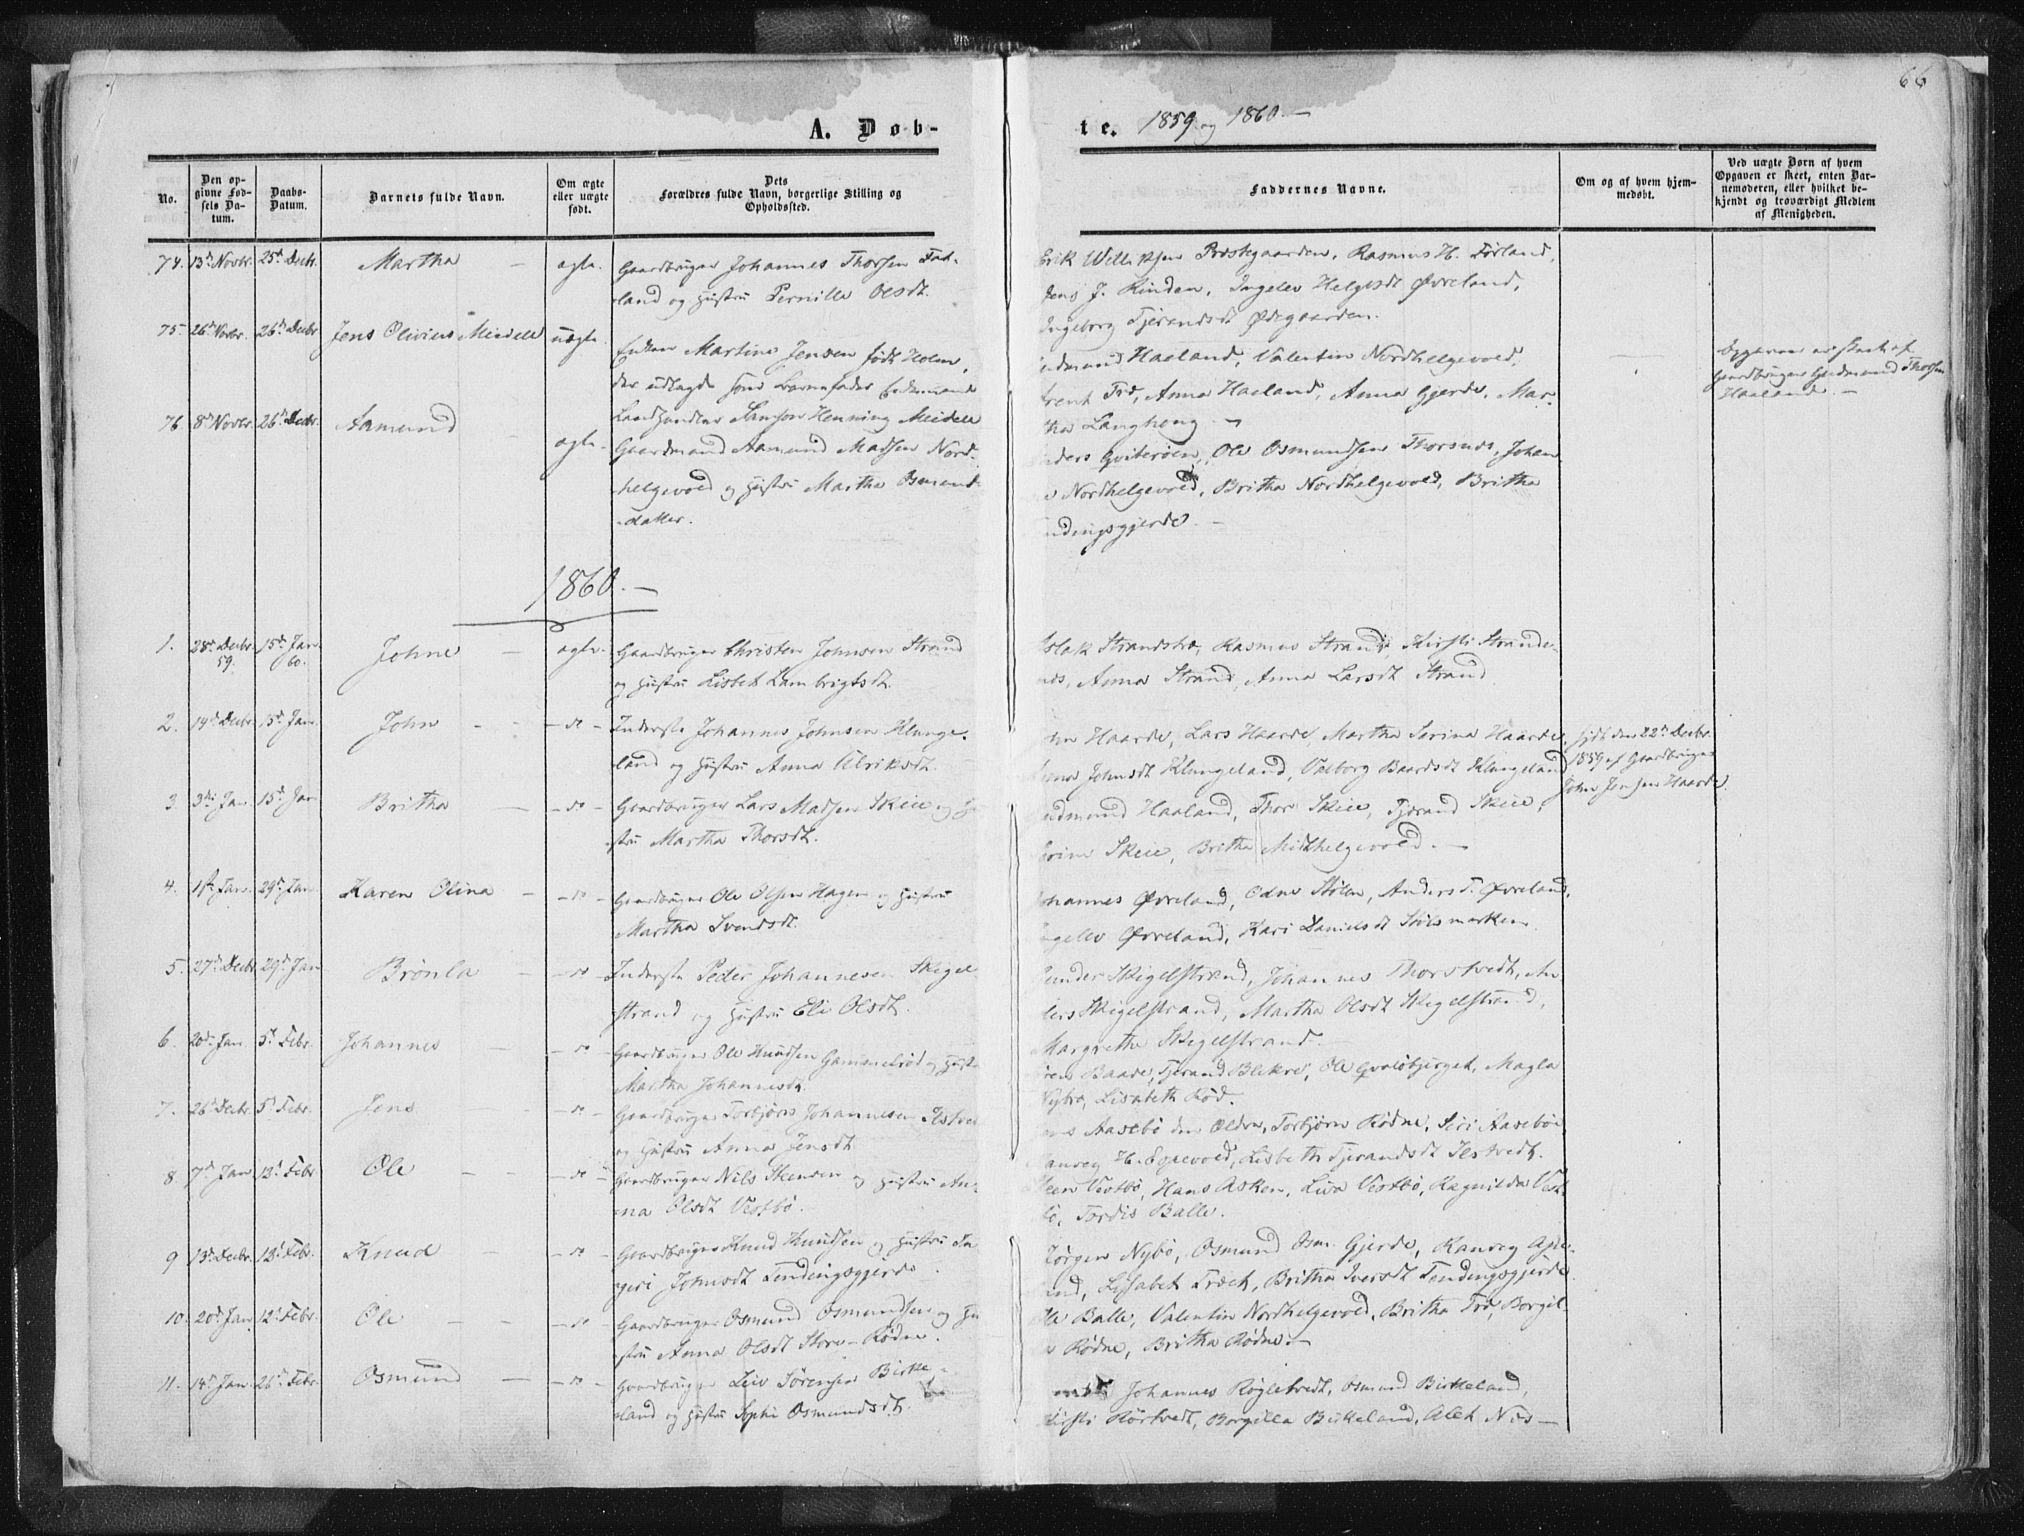 66
A. Døb-
te. 1859 og 1860.—
No.
Den op-
givne Fød-
sels Da-
tum.
Daabs-
Datum.
Barnets fulde Navn.
Om ægte
eller uægte
født.
Dets
Forældres fulde Navn, borgerlige Stilling og
Opholdssted.
Faddernes Navne.
Om og af hvem hjem-
medøbt.
Ved uægte Børn af hvem
Opgaven er skeet, enten Bar-
nemoderen, eller hvilket be-
kjendt og troværdigt Medlem
af Menigheden.
74. 13d Novbr. 25d Decbr. Martha — ægte. Gaardbruger Johannes Thorsen
land og Hustru Pernilla Olsdt.
Erik Præstegaarden, Rasmus H. Førland,
Jens J. Rinden, Ingelev Helgesdt Øvreland,
Ingeborg Tjerandsdt Ødegaarden.
75. 26d Novbr. 26d Decbr Jens Olivius Meidell uægte Enken Martine Jensen født Holm,
der udlagde som Barnefader Enkemand
Landhandler Samson Henning Meidell
Haaland, Valentin Nordhelgevold,
Anna Haaland, Anna Gjerde, Mar-
tha Langhong —
Opgaven er skeet af
Gaardbruger Gudmund Thorsen
Haaland —
76 8d Novbr. 26d Decbr. Aamund — ægte. Gaardmand Aamund Madsen Nord-
helgevold og Hustru Martha Osmund-
datter.
Ole Osmundsen Thorsnes, Johan-
Nordhelgevold, Britha Nordhelgevold, Britha
1860.—
1. 28d Decbr 59. 15d Jan 60. Johne — ægte. Gaardbruger Christen Johnsen Strand
og Hustru Lisbet Lambrigtsdt.
Rasmus Strand, Kirsti Strande-
Anna Strand, Anna Larsdt Strand
2. 14d Decbr 15d Jan. John — do — Inderste Johannes Johnsen Klunge-
land og Hustru Anna Ulriksdt.
Haarde, Lars Haarde, Martha Serina Haarde,
Johnsdt Klungeland, Valborg Baardsdt Klungeland
født den 22d Decbr.
1859 af Gaardbruger
John Jensen Haarde.
3. 3di Jan. 15d Jan Britha — do — Gaardbruger Lars Madsen Skeie og Hu-
stru Martha Thorsdt.
Haaland, Thor Skeie, Tjerand Skeie,
Skeie, Britha Midthelgevold.—
4. 1ste Jan. 29d Jan Karen Olina — do — Gaardbruger Ole Olsen Hagen og Hustru
Martha Svendsdt.
Johannes Øvreland, Odne Stølen, Anders T. Øvreland,
Øvreland, Kari Danielsdt Stølsmarken.
5. 27d Decbr 29d Jan Brønla — do — Inderste Peder Johannesen Skigel-
strand og Hustru Eli Olsdt.
Skigelstrand, Johannes Thorstvedt, An-
ders Skigelstrand, Martha Olsdt Skigelstrand,
Margrethe Skigelstrand.
6. 20d Jan 5d Febr. Johannes — do — Gaardbruger Ole Knudsen Gammelrød og Hustru
Martha Johannesdt.
Tjerand Blikra, Ole Qvaløbjerget, Magla
Nybø, Lisabeth Rød.
7. 26d Decbr. 5d Febr. Jens — do — Gaardbruger Torbjørn Johannesen
og Hustru Anna Jensdt
Aasebø den Eldre, Torbjørn Rødne, Siri Aasebø,
Lisbeth Tjerandsdt
8 7d Jan 12d Febr Ole — do — Gaardbruger Nils Steensen og Hustru An-
na Olsdt Vestbø.
Steen Vestbø, Hans Asken, Liva Vestbø, Ragnilda Vest-
bø, Tordis Balle.
9 13d Decbr. 12d Febr. Knud — do — Gaardbruger Knud Knudsen og Hustru In-
geri Johnsdt Tendingsgjerde
Jørgen Nybø, Osmund Osm. Gjerde, Ranveg
Lisabet Træet, Britha Iversdt Tendingsgjerde
10. 20d Jan 12d Febr. Ole — do — Gaardbruger Osmund Osmundsen og Hu-
stru Anna Olsdt Store-Rødne.
Ole Balle, Valentin Nordhelgevold, Britha Tve, Borgil-
Rødne, Britha Rødne.—
11. 14d Jan 26d Febr. Osmund — do — Gaardbruger Leiv Sørensen Birke-
land og Hustru Sophie Osmundsdt.
Johannes Røgletvedt, Osmund Birkeland,
Kirsti Rørtvedt, Borgilla Birkeland, Alet Næs —